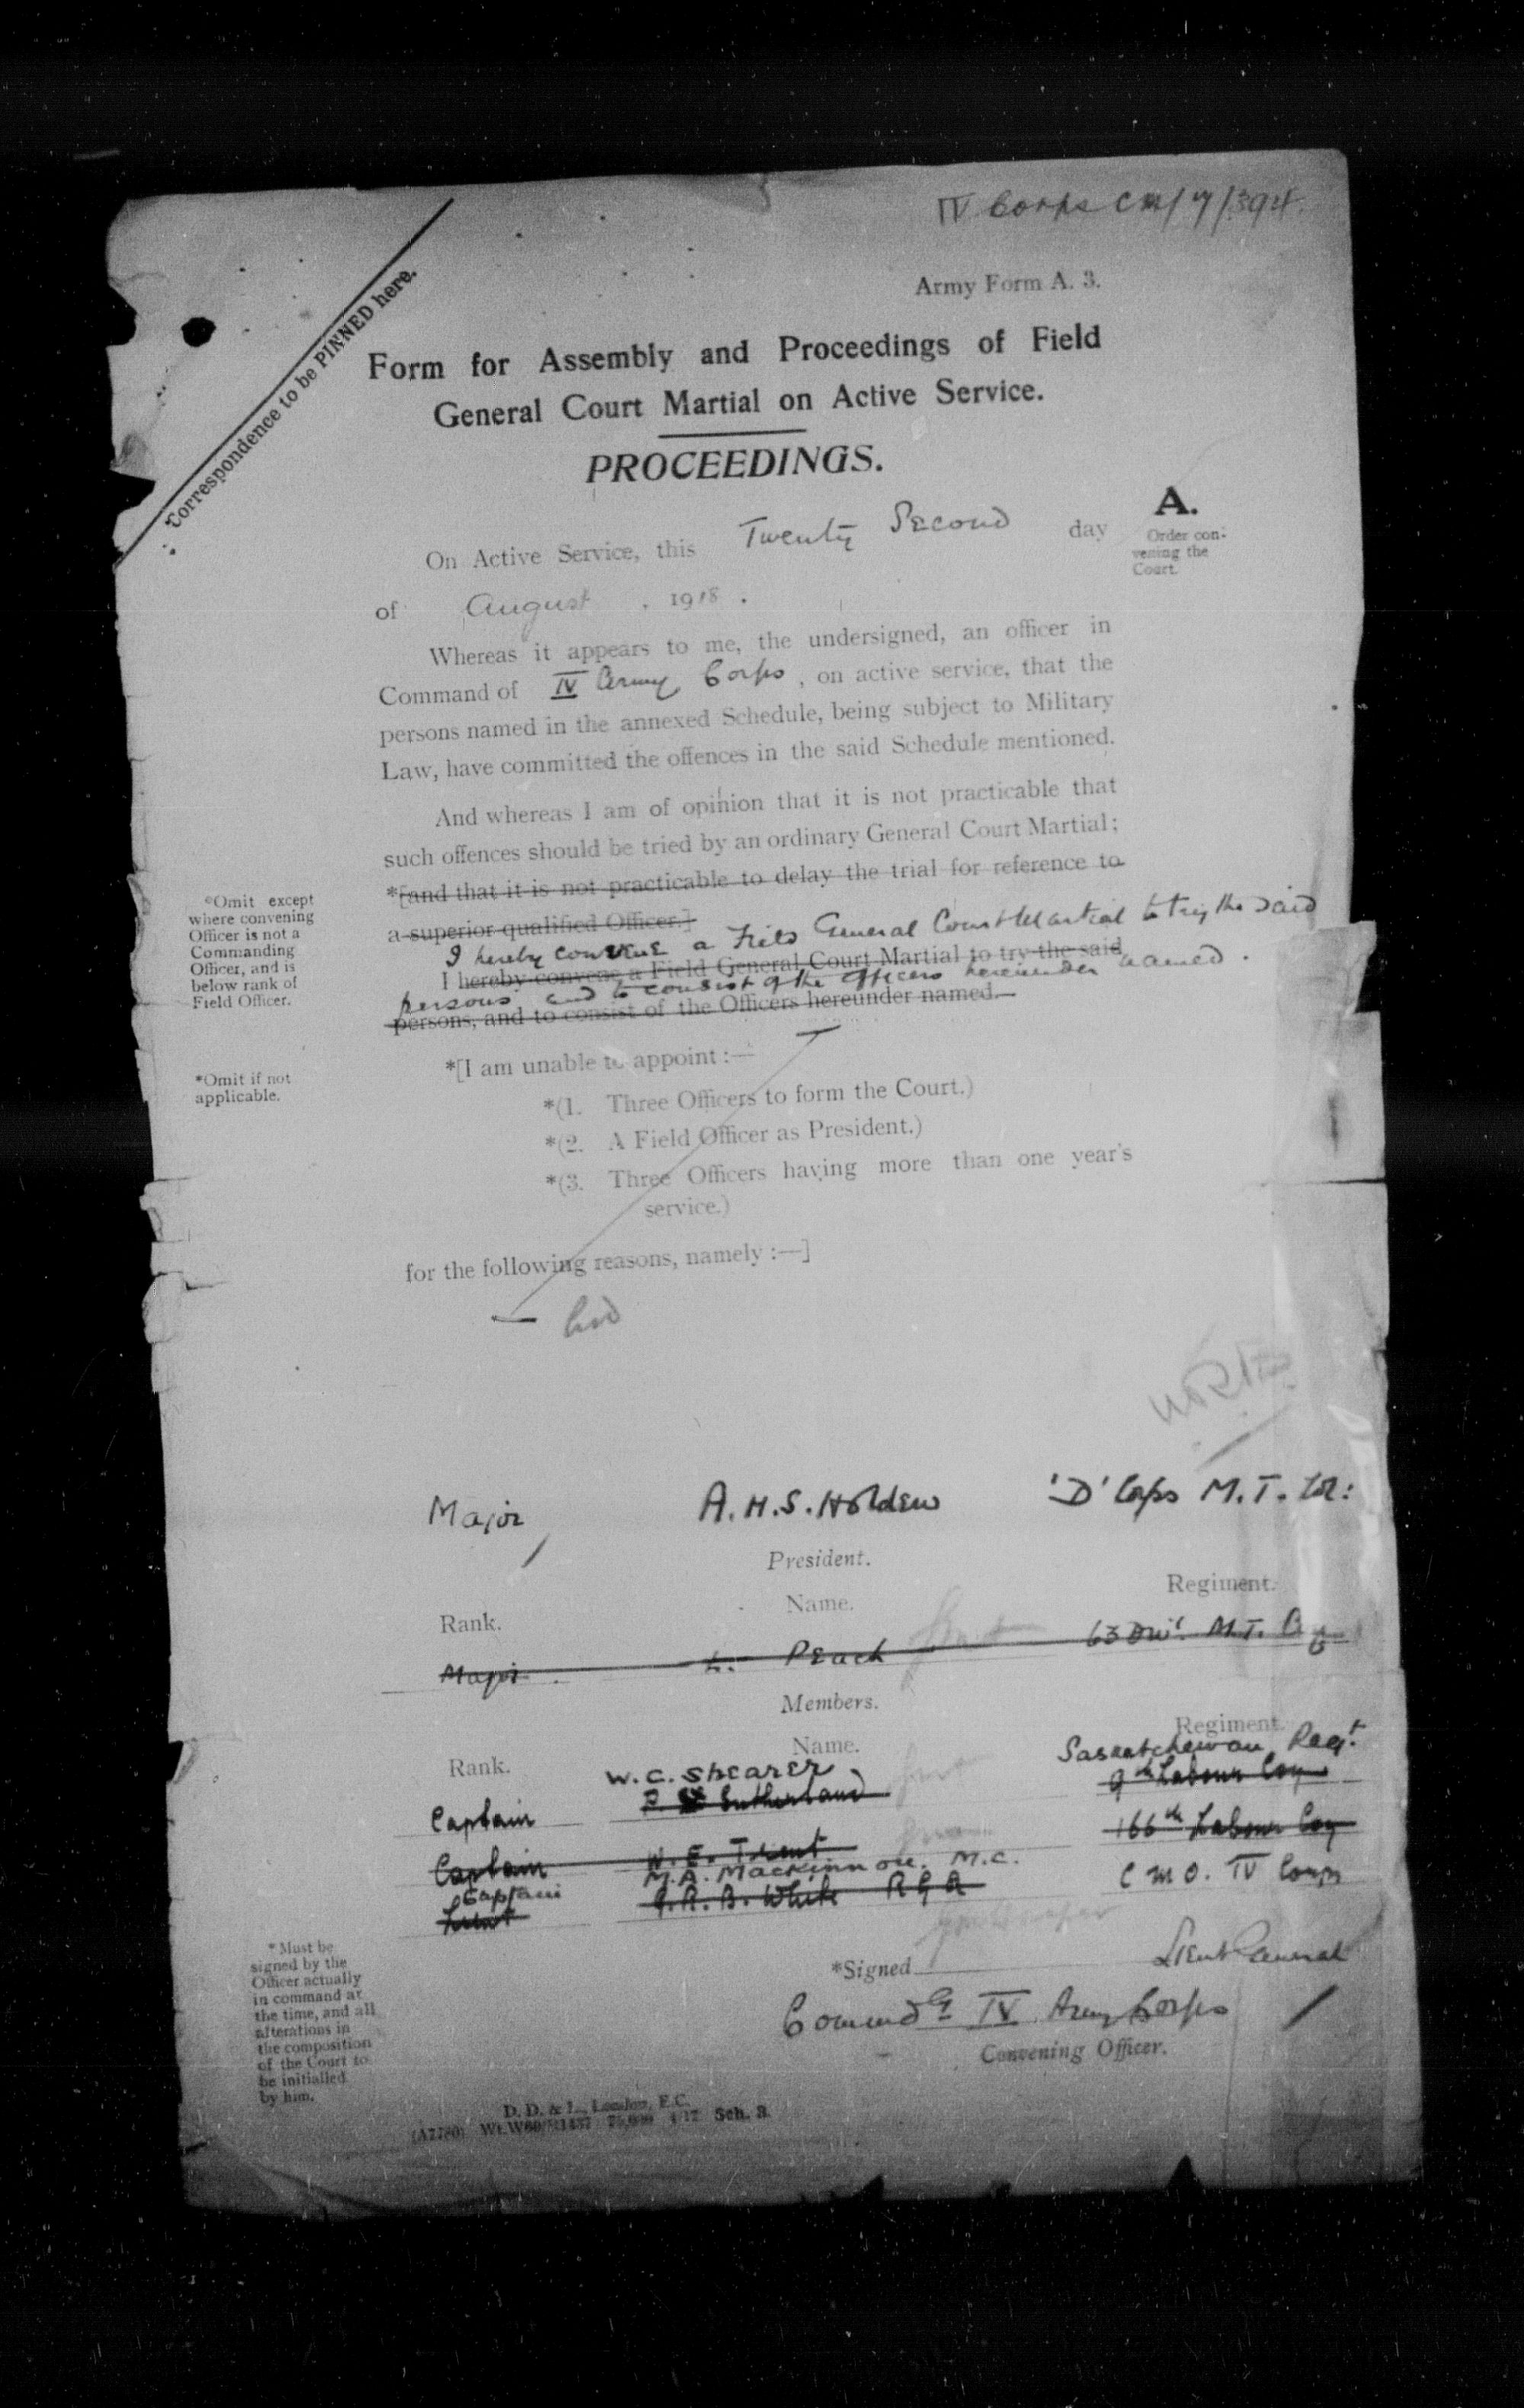 IV Corps CM/7/394.
Correspondence to be PINNED here.
Army Form A. 3.
Form for Assembly and Proceedings of Field
General Court Martial on Active Service.
PROCEEDINGS.
A.
Order con-
vening the
Court.
On Active Service, this Twenty Second day
of August . 1918 .
Whereas it appears to me, the undersigned, an officer in
Command of IV Army Corps , on active service, that the
persons named in the annexed Schedule, being subject to Military
Law, have committed the offences in the said Schedule mentioned.
And whereas I am of opinion that it is not practicable that
such offences should be tried by an ordinary General Court Martial;
*[and that it is not practicable to delay the trial for reference to
a superior qualified Officer.]
*Omit except
where convening
Officer is not a
Commanding
Officer, and is
below rank of
Field Officer.
I hereby convene a Field General Court Martial to try the said
I hereby convene a Field General Court Martial to try the said
persons, and to consist of the Officers hereunder named.
persons, and to consist of the Officers hereunder named.
*Omit if not
applicable.
*[I am unable to appoint :—
*(1. Three Officers to form the Court.)
*(2. A Field Officer as President.)
*(3. Three Officers having more than one year's
service.)
for the following reasons, namely :—]
Major A. H. S. Holden 'D' Corps M. T. Col:
President.
Rank. Name. Regiment.
Major L. Peach 63 Divl. M.T. Coy
Members.
Rank. Name. Regiment.
W. C. Shearer Saskatchewan Regt.
Captain Sutherland 9th Labour Coy
Captain W. E. Trent 166th Labour Coy
Captain M. A. Mackinnon. M.C. C M O. IV Corps
Lieut J. R. B. White R G A
*Signed Lieut General
Commdg IV Army Corps
Convening Officer.
*Must be
signed by the
Officer actually
in command at
the time, and all
alterations in
the composition
of the Court to
be initialled
by him.
D. D. & L., London, E.C.
(A7780) Sch. 3.